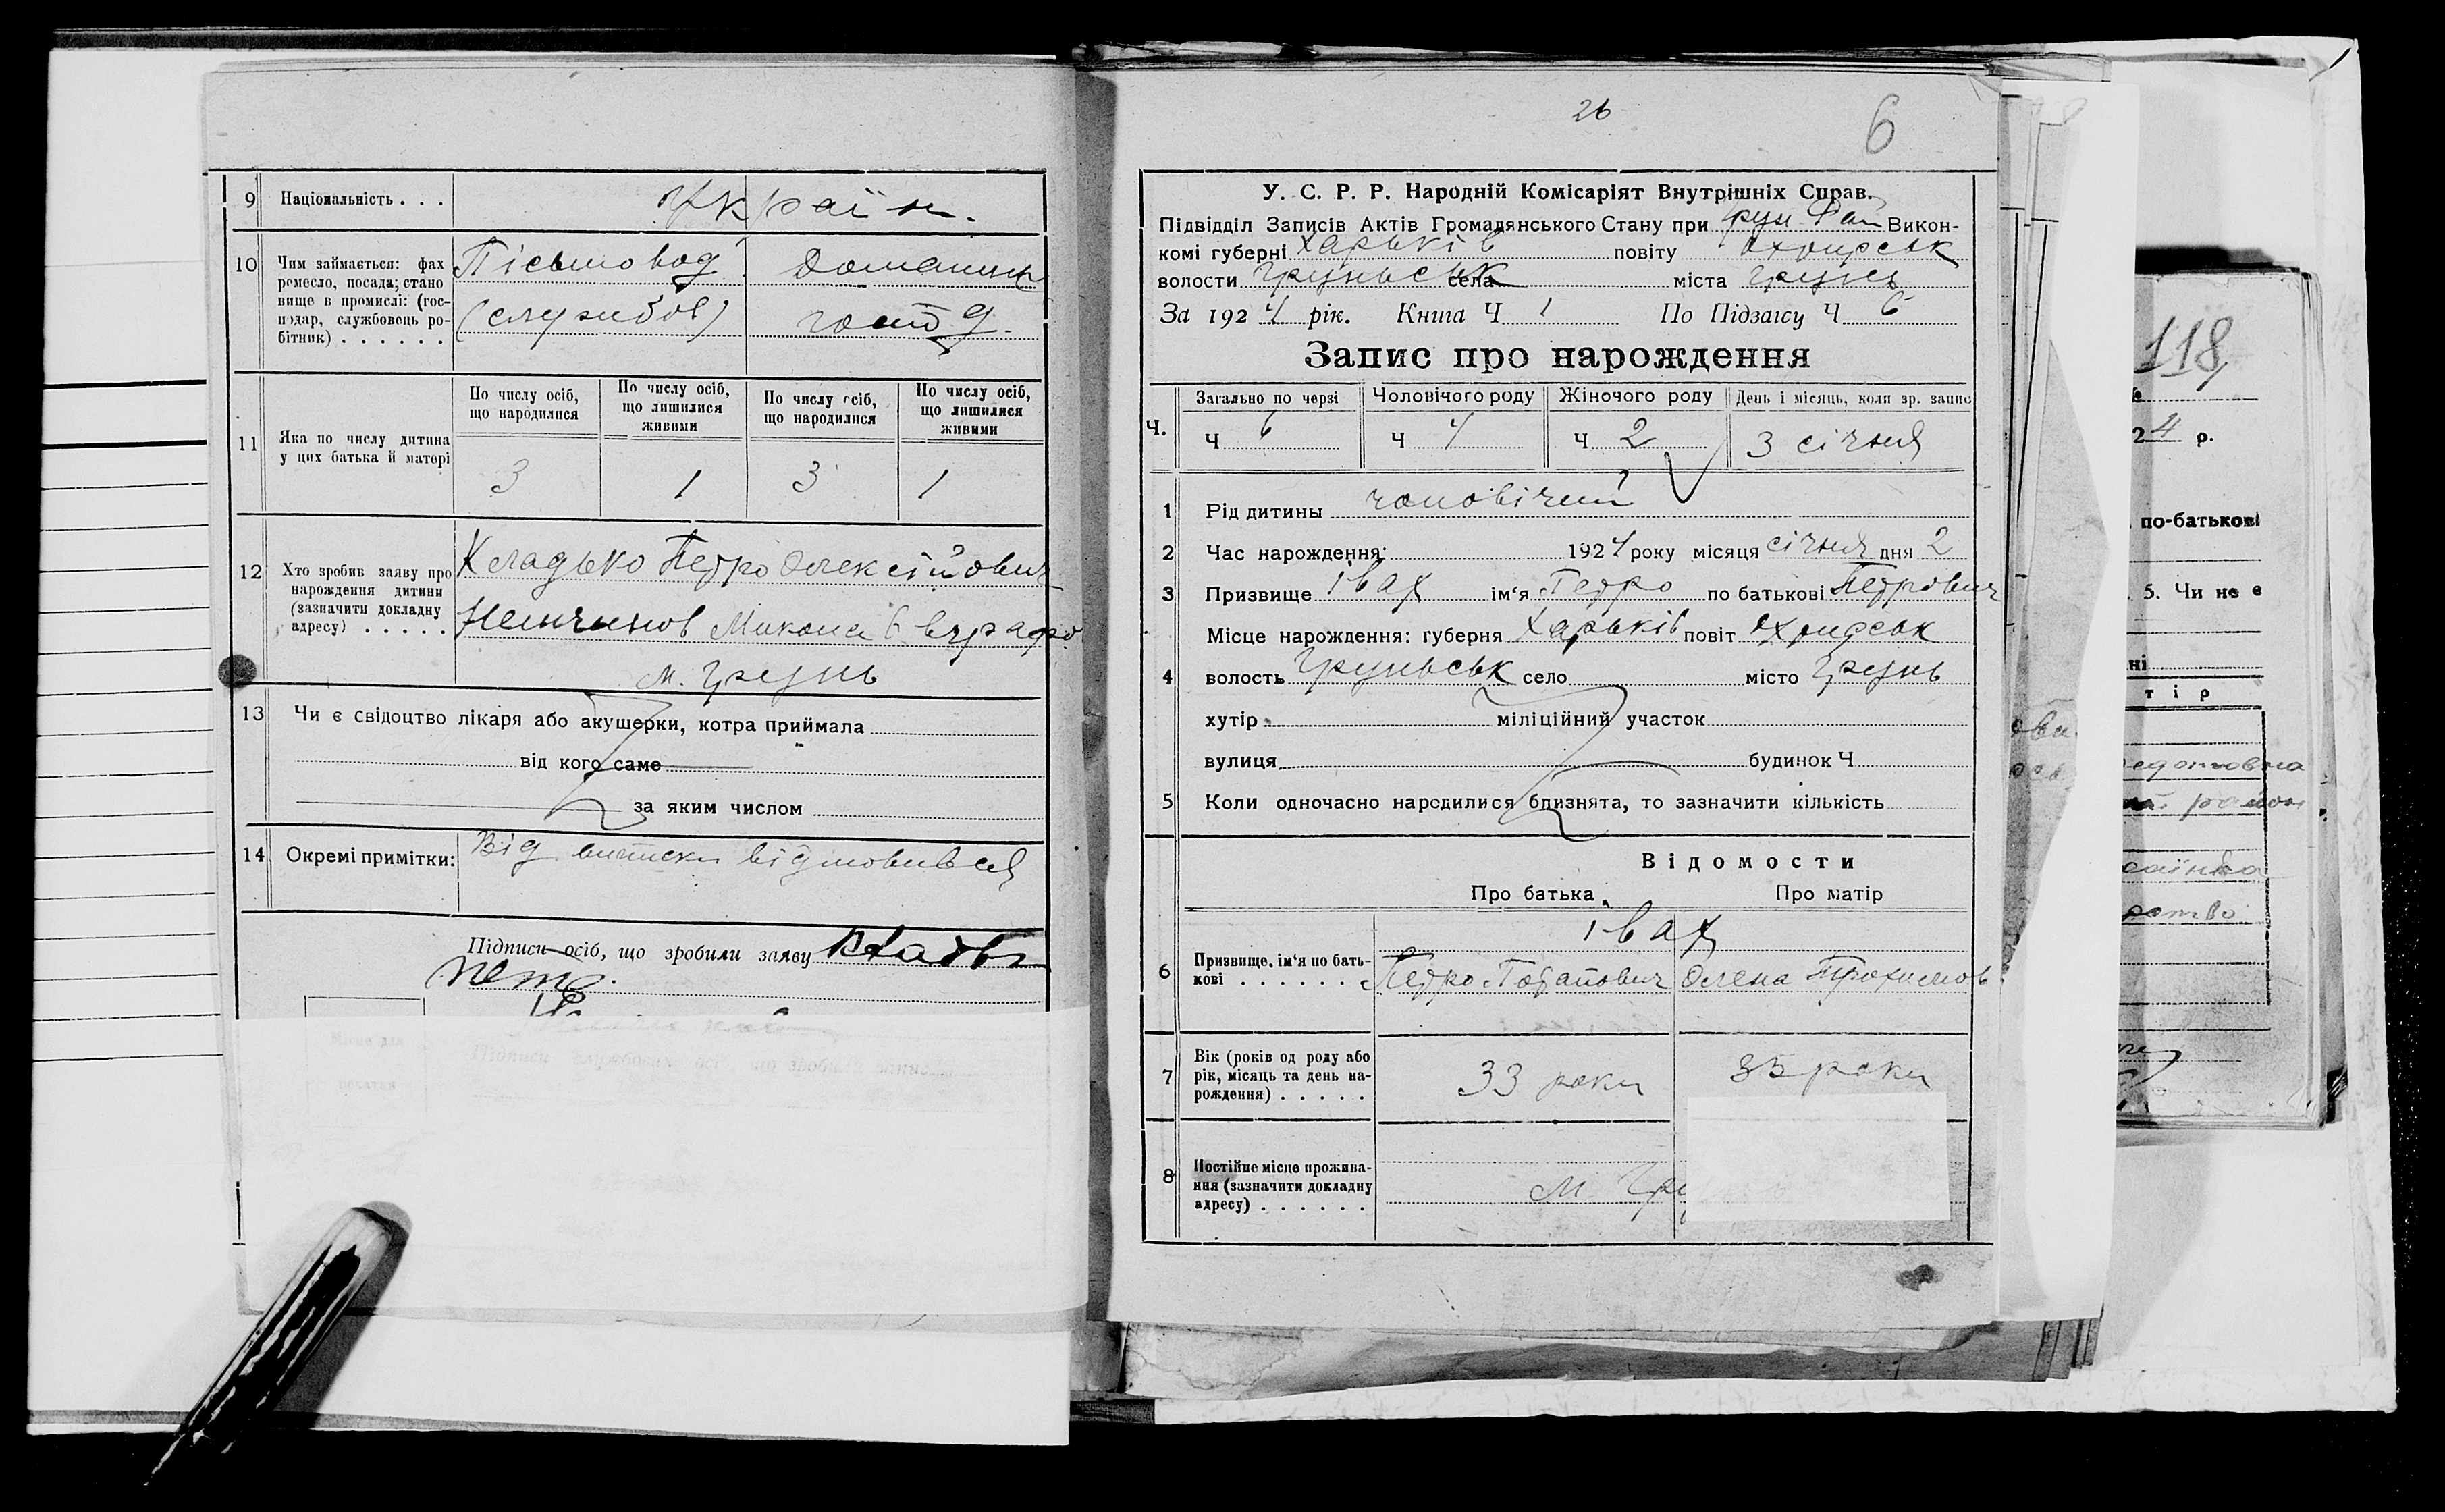 9 Національність . . .
Україн.
10 Чим займається: фах
ремесло, посада; стано
вище в промислі: (гос-
подар, службовець ро-
бітник) . . . . . .
Пісьмовод.
(службов)
Домашнє
госпд.
11 Яка по числу дитина
у цих батька й матері
По числу осіб,
що народилися
По числу осіб,
що лишилися
живими
По числу осіб,
що народилися
По числу осіб,
що лишилися
живими
3 1 3 1
12 Хто зробив заяву про
нарождення дитини
(зазначити докладну
адресу) . . . . .
Кладько Петро Олексійович
Немчинов Микола
м. Грунь
13 Чи є свідоцтво лікаря або акушерки, котра приймала
від кого саме
за яким числом
14 Окремі примітки:
Від виписки відмовився
Підписи осіб, що зробили заяву
26
6
У. С. Р. Р. Народній Комісаріят Внутрішніх Справ.
Підвідділ Записів Актів Громадянського Стану при Грун Рай Викон-
комі губерні Харьків повіту Охтирськ
волости Груньськ села міста Грунь
За 1924 рік. Книга Ч 1 По Підзагсу Ч 6
Запис про нарождення
Ч.
Загально по черзі
Чоловічого роду
Жіночого роду
День і місяць, коли зр. запис
Ч 6
Ч 4
Ч 2
3 січня
1 Рід дитини чоловічий
2 Час нарождення: 1924 року місяця січня дня 2
3 Призвище Івах ім'я Петро по батькові Петрович
4 Місце нарождення: губерня Харьків повіт Охтирськ
волость Груньськ село місто Грунь
хутір міліційний участок
вулиця будинок Ч
5 Коли одночасно народилися близнята, то зазначити кількість
Відомости
Про батька
Про матір
6 Призвище, ім'я по бать-
кові . . . . . .
Івах
Петро Потапович
Олена Трохимов
7 Вік (років од роду або
рік, місяць та день на-
рождення) . . . . .
33 роки
35 роки
8 Постійне місце прожива-
ння (зазначити докладну
адресу) . . . . . .
м. Гру
118
24 р.
по-батькові
5. Чи не є